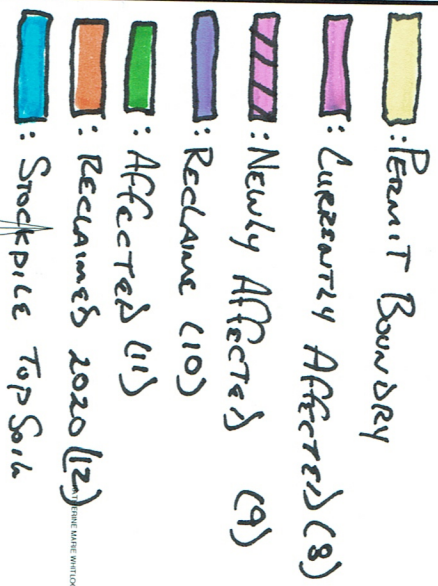 : PERMIT BOUNDRY
: CURRENTLY AFFECTED (8)
: NEWLY AFFECTED (9)
: RECLAIME (10)
: AFFECTED (11)
: RECLAIMED 2020 (12)
: STOCKPILE TOPSOIL
ATHERINE MARIE WHITLOC